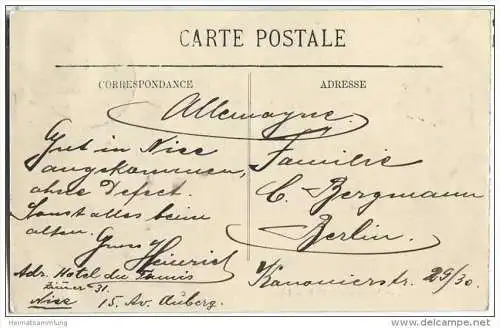 CARTE POSTALE
CORRESPONDANCE
ADRESSE
Allemagne.
Gut in Nice
angekommen,
ohne Defect.
Sonst alles beim
alten.
Gruss Heinrich
Adr. Hotel du
Zimer 31.
Nice 15. Av. Auberg.
Familie
C. Bergmann
Berlin.
Kanonierstr. 29/30.